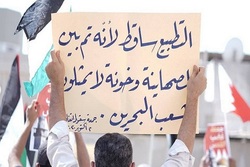 التطبيع ساقط لأنه تم بين
صهاينة وخونة لا يمثلون
شعب البحرين.